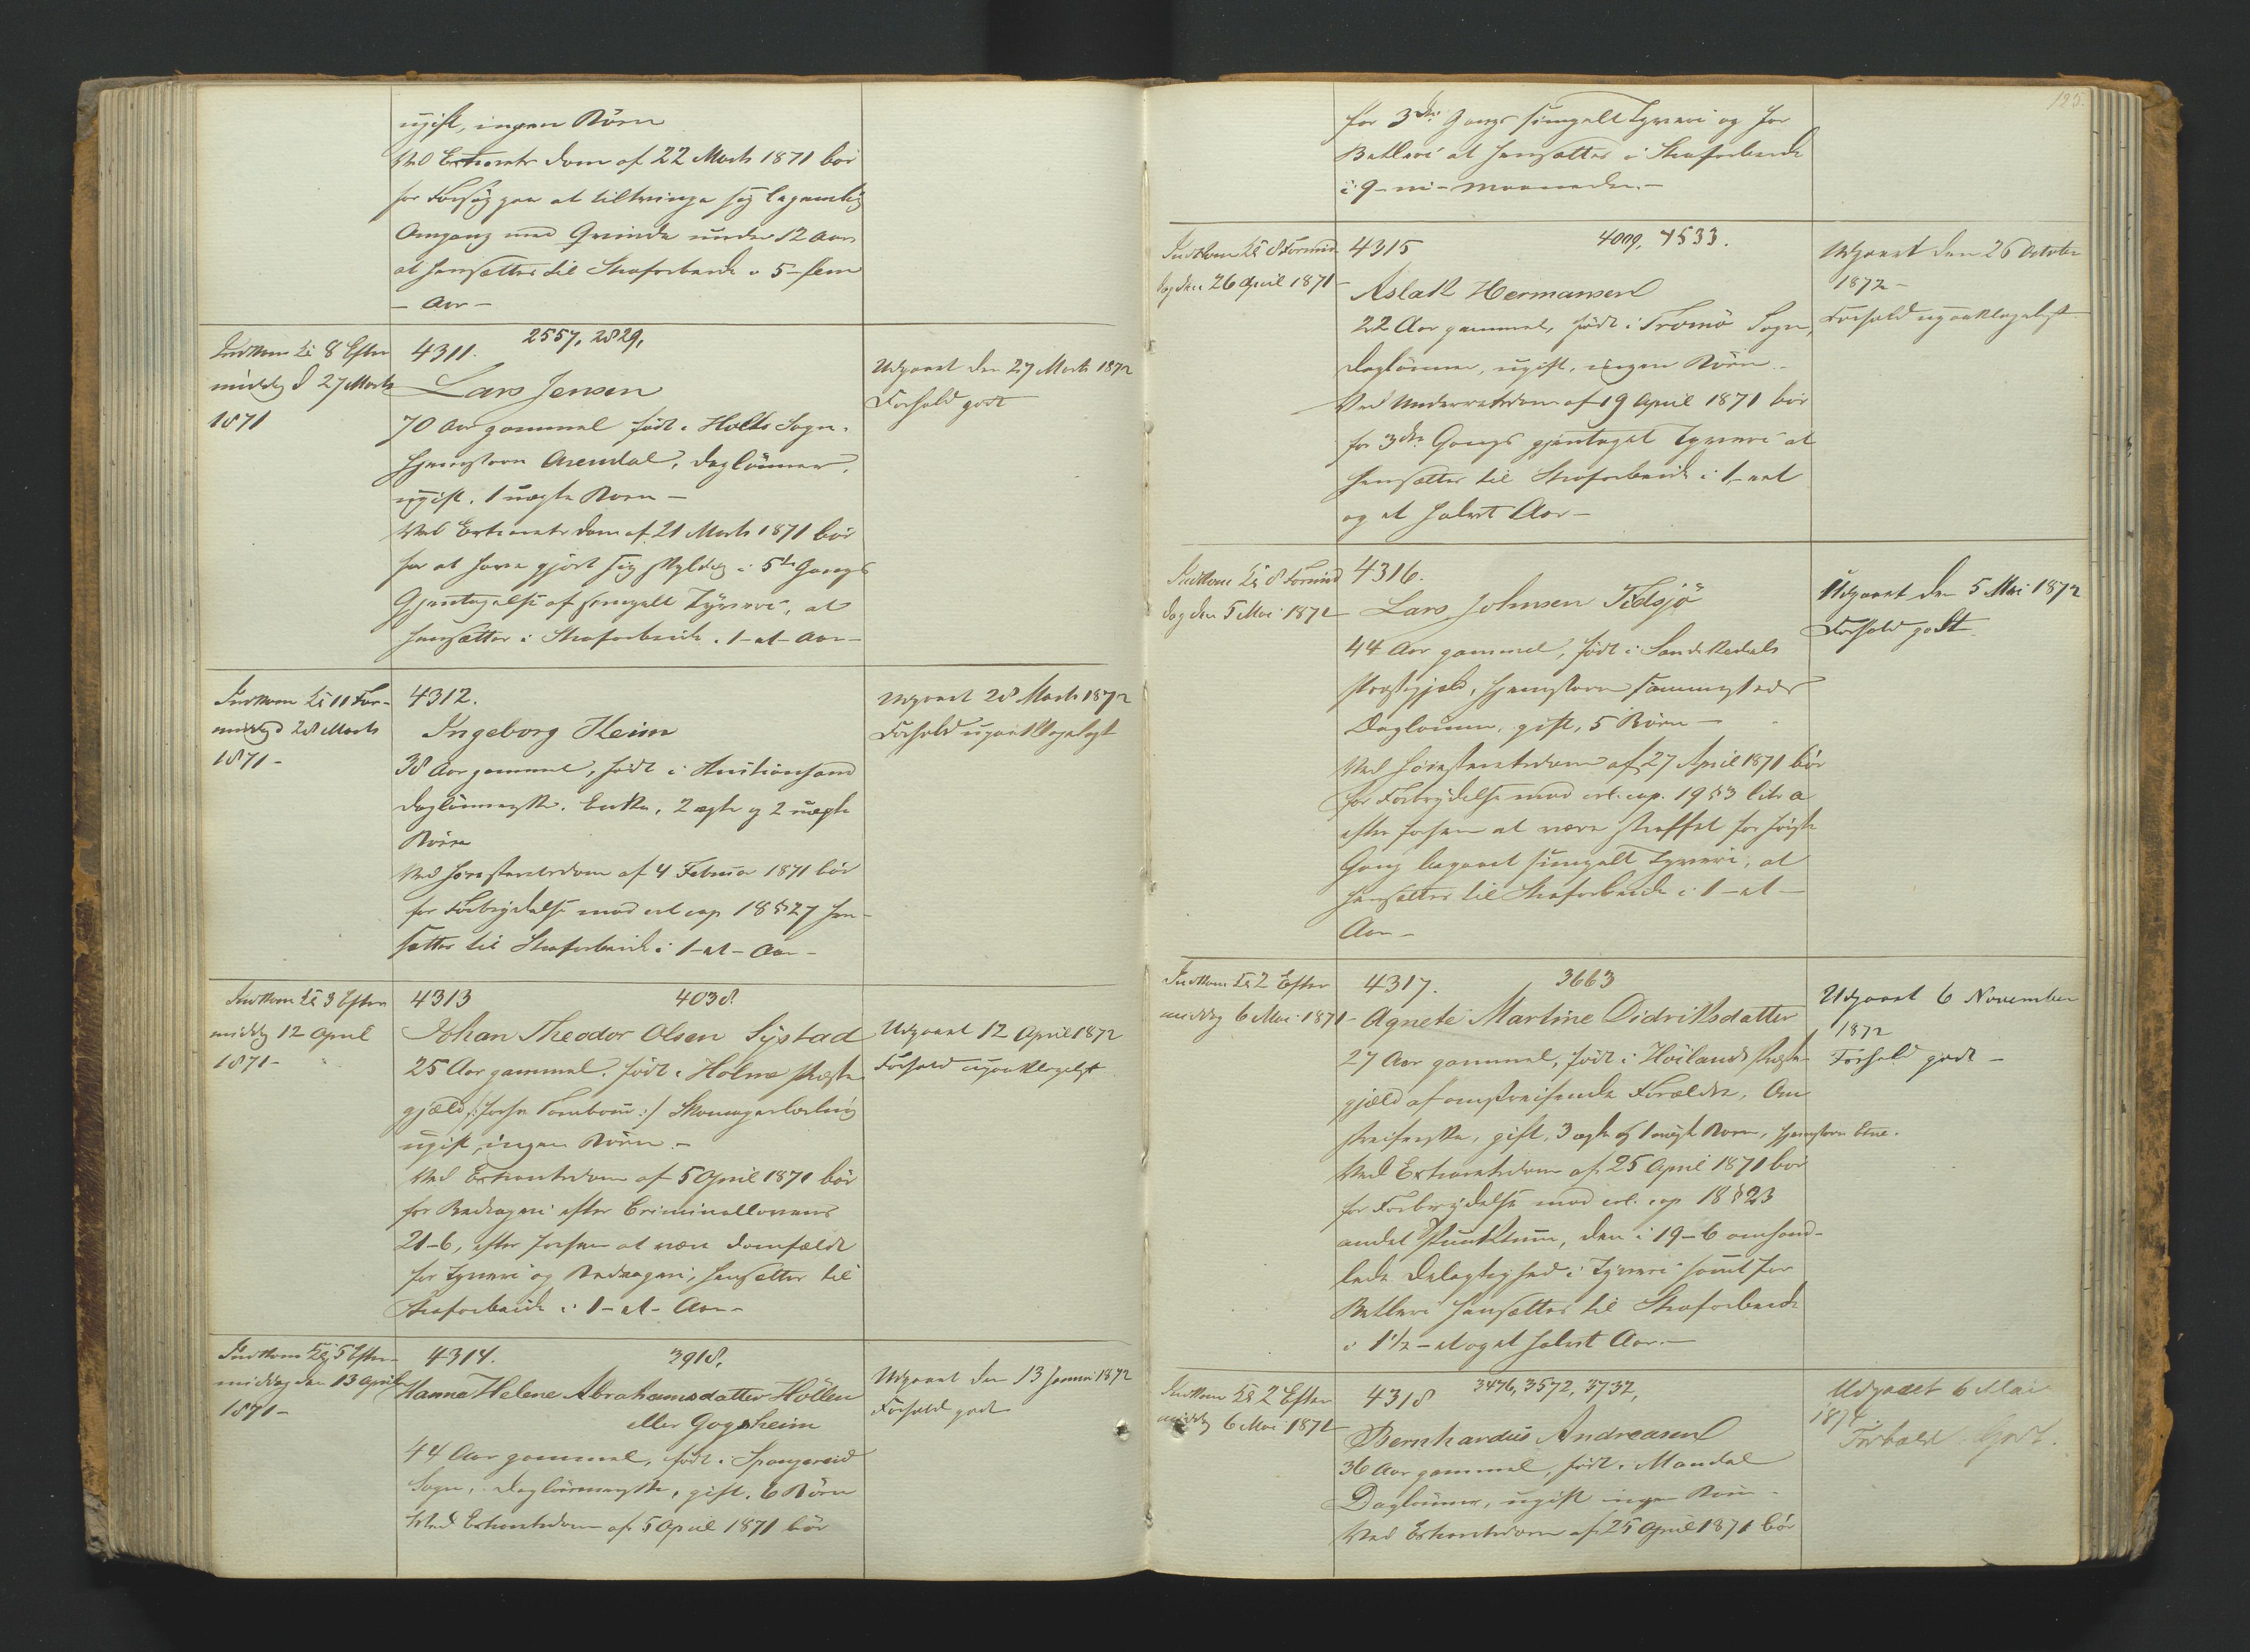 ugift, ingen Börn
Ved Extrarets Dom af 22 Marts 1871 bör
for Forsög paa at tiltvinge sig legemlig
Omgang med Qvinde under 12 Aar
at hensættes til Strafarbeide i 5 - fem
- Aar -
Indkom Kl 8 Efter
middag d 27 Marts
1871
4311. 2557, 2829,
Lars Jensen
70 Aar gammel födt i Holts Sogn.
Hjemstavn Arendal, Daglönner,
ugift. 1 uægte Barn -
Ved Extrarets Dom af 21 Marts 1871 bör
for at have gjort sig skyldig i 5te Gangs
Gjentagelse af simpelt Tyveri, at
hensættes i Strafarbeide i 1 - et - Aar -
Udgaaet den 27 Marts 1872
Forhold godt
Indkom Kl 11 For-
middag d 28 Marts
1871 -
4312.
Ingeborg Heim
38 Aar gammel, födt i Christiansand
Daglönnerske. Enke, 2 ægte og 2 uægte
Börn
Ved Höiesteretsdom af 4 Februar 1871 bör
for Forbrydelse mod crl cap 18 § 27 hen-
sættes til Strafarbeide i 1 - et - Aar -
Udgaaet 28 Marts 1872
Forhold upaaklageligt
Indkom Kl 3 Efter
middag 12 April
1871 -
4313 4038.
Johan Theodor Olsen Systad
25 Aar gammel. födt i Holme Præste
gjæld, Skomagerlærling
ugift, ingen Börn -
Ved Extraretsdom af 5 April 1871 bör
for Bedrageri efter Criminallovens
21-6, efter forhen at være domfældt
for Tyveri og Bedrageri, hensættes til
Strafarbeide i 1 - et - Aar -
Udgaaet 12 April 1872
Forhold upaaklageligt
Indkom Kl 5 Efter-
middag den 13 April
1871 -
4314. 3918,
Hanna Helene Abrahamsdatter Höllen
eller Gogsheim
44 Aar gammel, födt i Spangereid
Sogn, Daglönnerske, gift, 6 Börn
Ved Extraretsdom af 5 April 1871 bör
Udgaaet den 13 Januar 1872
Forhold godt
125.
for 3die Gangs simpelt Tyveri og for
Betleri at hensættes i Strafarbeide
i 9 - ni - Maaneder. -
Indkom Kl 8 Formid
dag den 26 April 1871 -
4315 4533.
Aslak Hermansen
22 Aar gammel, födt i Tromö Sogn,
Daglönner, ugift, ingen Börn -
Ved Underretsdom af 19 April 1871 bör
for 3die Gangs gjentaget Tyveri at
hensættes til Strafarbeide i 1 - eet
og et halvt Aar -
Udgaaet den 26 October
1872 -
Forhold upaaklageligt
Indkom Kl 8 Formid
dag den 5 Mai 1871
4316.
Lars Johnsen Tidsjö
44 Aar gammel, födt i Sandskedals
Præstegjæld, Hjemstavn sammesteds
Daglönner, gift, 5 Börn -
Ved Höiesteretsdom af 27 April 1871 bör
for Forbrydelse mod crl. cap. 19 § 3 litr a
efter forhen at være straffet for förste
Gang begaaet simpelt Tyveri, at
hensættes til Strafarbeide i 1 - et -
Aar -
Udgaaet den 5 Mai 1872
Forhold godt
Indkom Kl 2 Efter
middag 6 Mai 1871 -
4317. 3663
Agnete Martine Didriksdatter
27 Aar gammel, födt i Höilands Præste-
gjæld af omstreifende Forældre, Om
streiferske, gift, 3 ægte og 1 uægte Barn, Hjemstavn Etne.
Ved Extraretsdom af 25 April 1871 bör
for Forbrydelse mod crl. cap 18 § 23
andet Punktum, den i 19-6 omhand-
lede Delagtighed i Tyveri samt for
Betleri hensættes til Strafarbeide
i 1½ - et og et halvt Aar. -
Udgaaet 6 November
1872
Forhold godt -
Indkom Kl 2 Efter
middag 6 Mai 1871
4318 3476, 3572, 3732,
Bernhardus Andreasen
36 Aar gammel, födt i Mandal
Daglönner, ugift ingen Börn -
Ved Extraretsdom af 25 April 1871 bör
Udgaaet 6 Mai
1874
Forhold Godt.